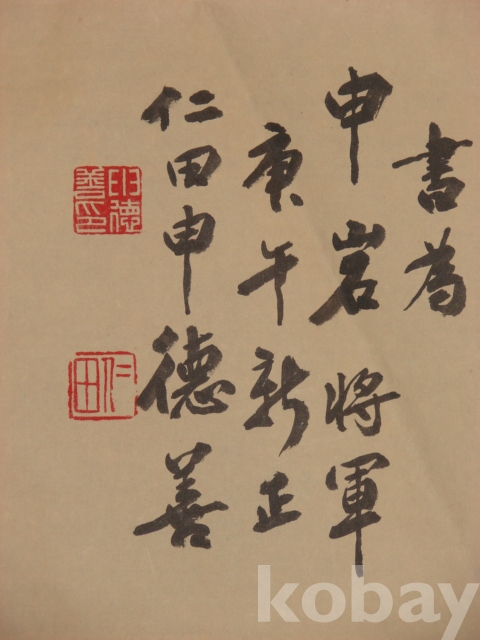 書為
申岩將軍
庚午新正
仁田申德善
申德善印
仁田
kobay